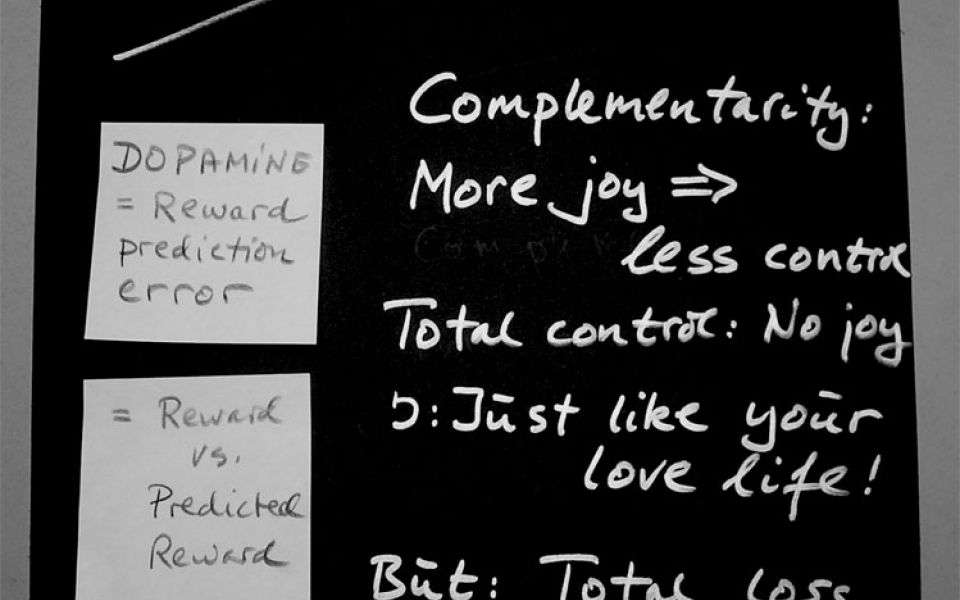 DOPAMINE
= Reward
prediction
error
= Reward
vs.
Predicted
Reward
Complementarity:
More joy =>
less control
Total control: No joy
Just like your
love life!
But: Total loss